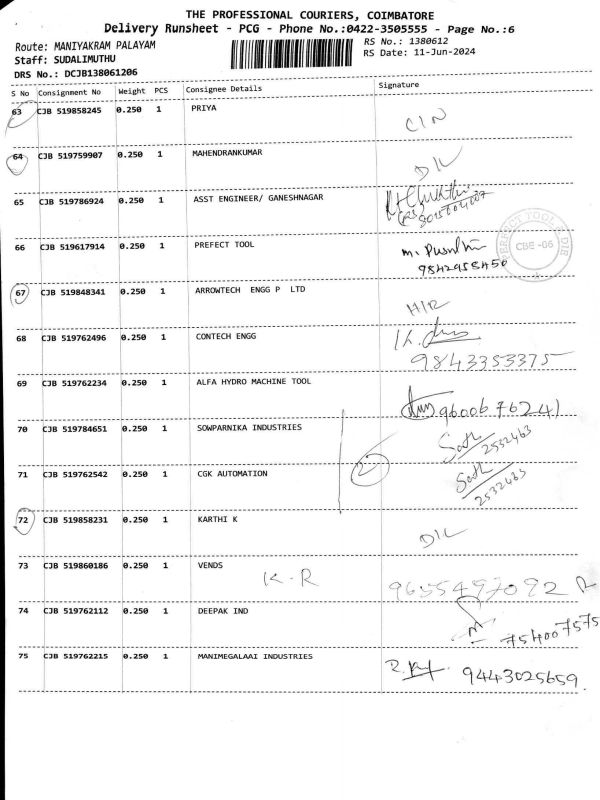 THE PROFESSIONAL COURIERS, COIMBATORE
Delivery Runsheet - PCG - Phone No.:0422-3505555 - Page No.:6
Route: MANIYAKRAM PALAYAM
RS No.: 1380612
Staff: SUDALIMUTHU
RS Date: 11-Jun-2024
DRS No.: DCJB138061206
S No Consignment No Weight PCS Consignee Details Signature
63 CJB 519858245 0.250 1 PRIYA CIN
64 CJB 519759907 0.250 1 MAHENDRANKUMAR D/L
65 CJB 519786924 0.250 1 ASST ENGINEER/ GANESHNAGAR
66 CJB 519617914 0.250 1 PREFECT TOOL
9842958450
PERFECT TOOL & DIE
CBE -06
67 CJB 519848341 0.250 1 ARROWTECH ENGG P LTD H/R
68 CJB 519762496 0.250 1 CONTECH ENGG
9843353375
69 CJB 519762234 0.250 1 ALFA HYDRO MACHINE TOOL
9600676241
70 CJB 519784651 0.250 1 SOWPARNIKA INDUSTRIES
2532463
71 CJB 519762542 0.250 1 CGK AUTOMATION 2
2532463
72 CJB 519858231 0.250 1 KARTHI K D/L
73 CJB 519860186 0.250 1 VENDS K.R 9655497092 R
74 CJB 519762112 0.250 1 DEEPAK IND
754007575
75 CJB 519762215 0.250 1 MANIMEGALAAI INDUSTRIES
9443025659